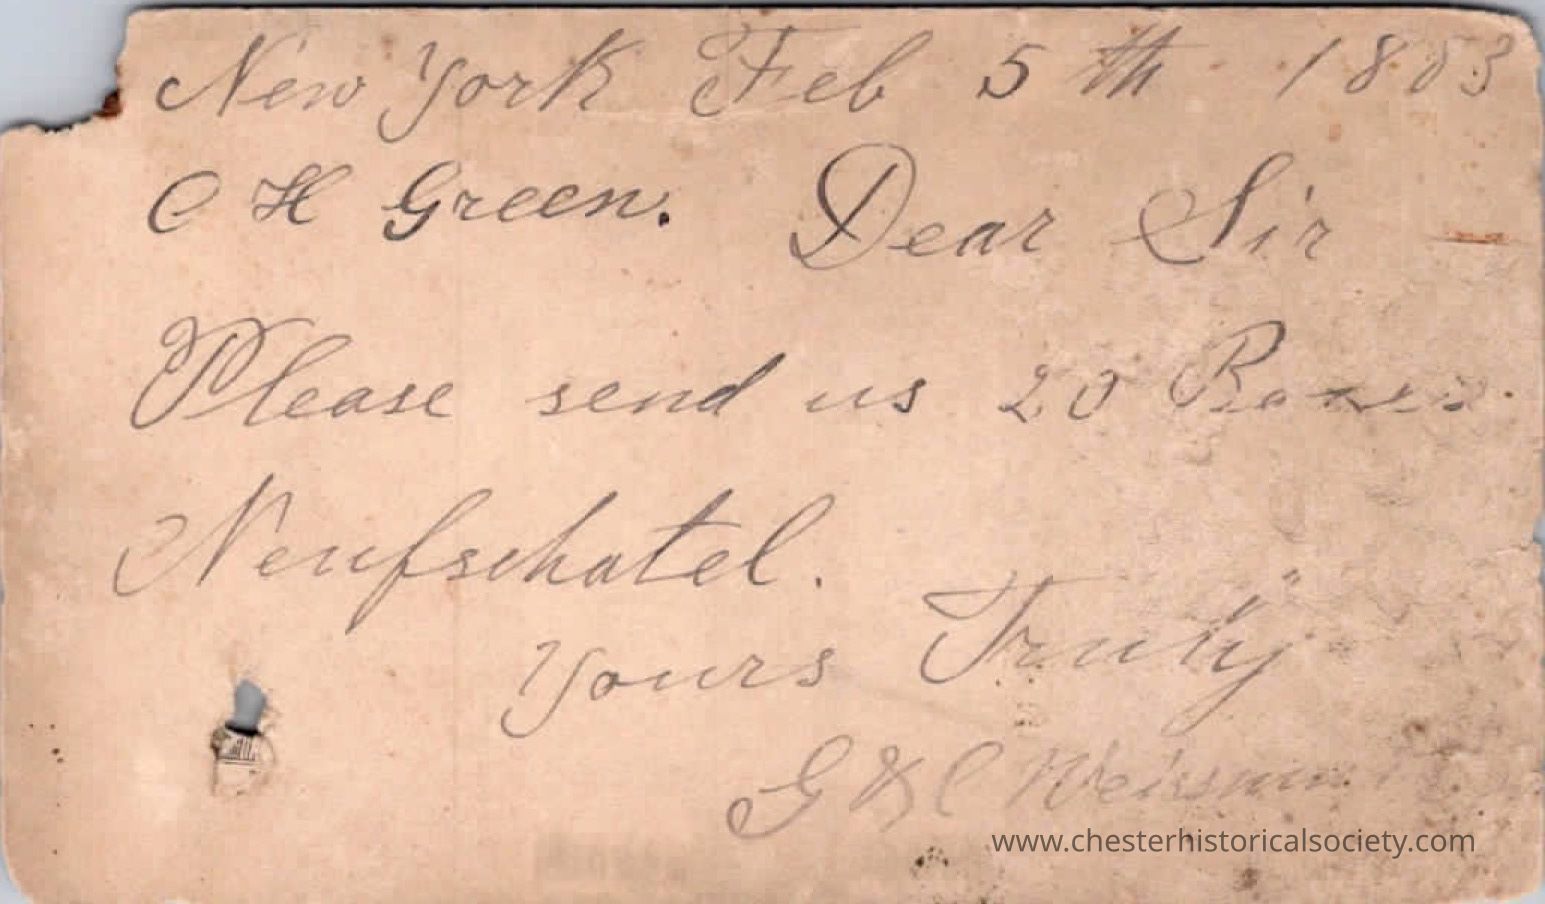 New York Feb 5th 1883
C H Green. Dear Sir
Please send us 20 Boxes
Neufschatel.
Yours Truly
G & C
www.chesterhistoricalsociety.com